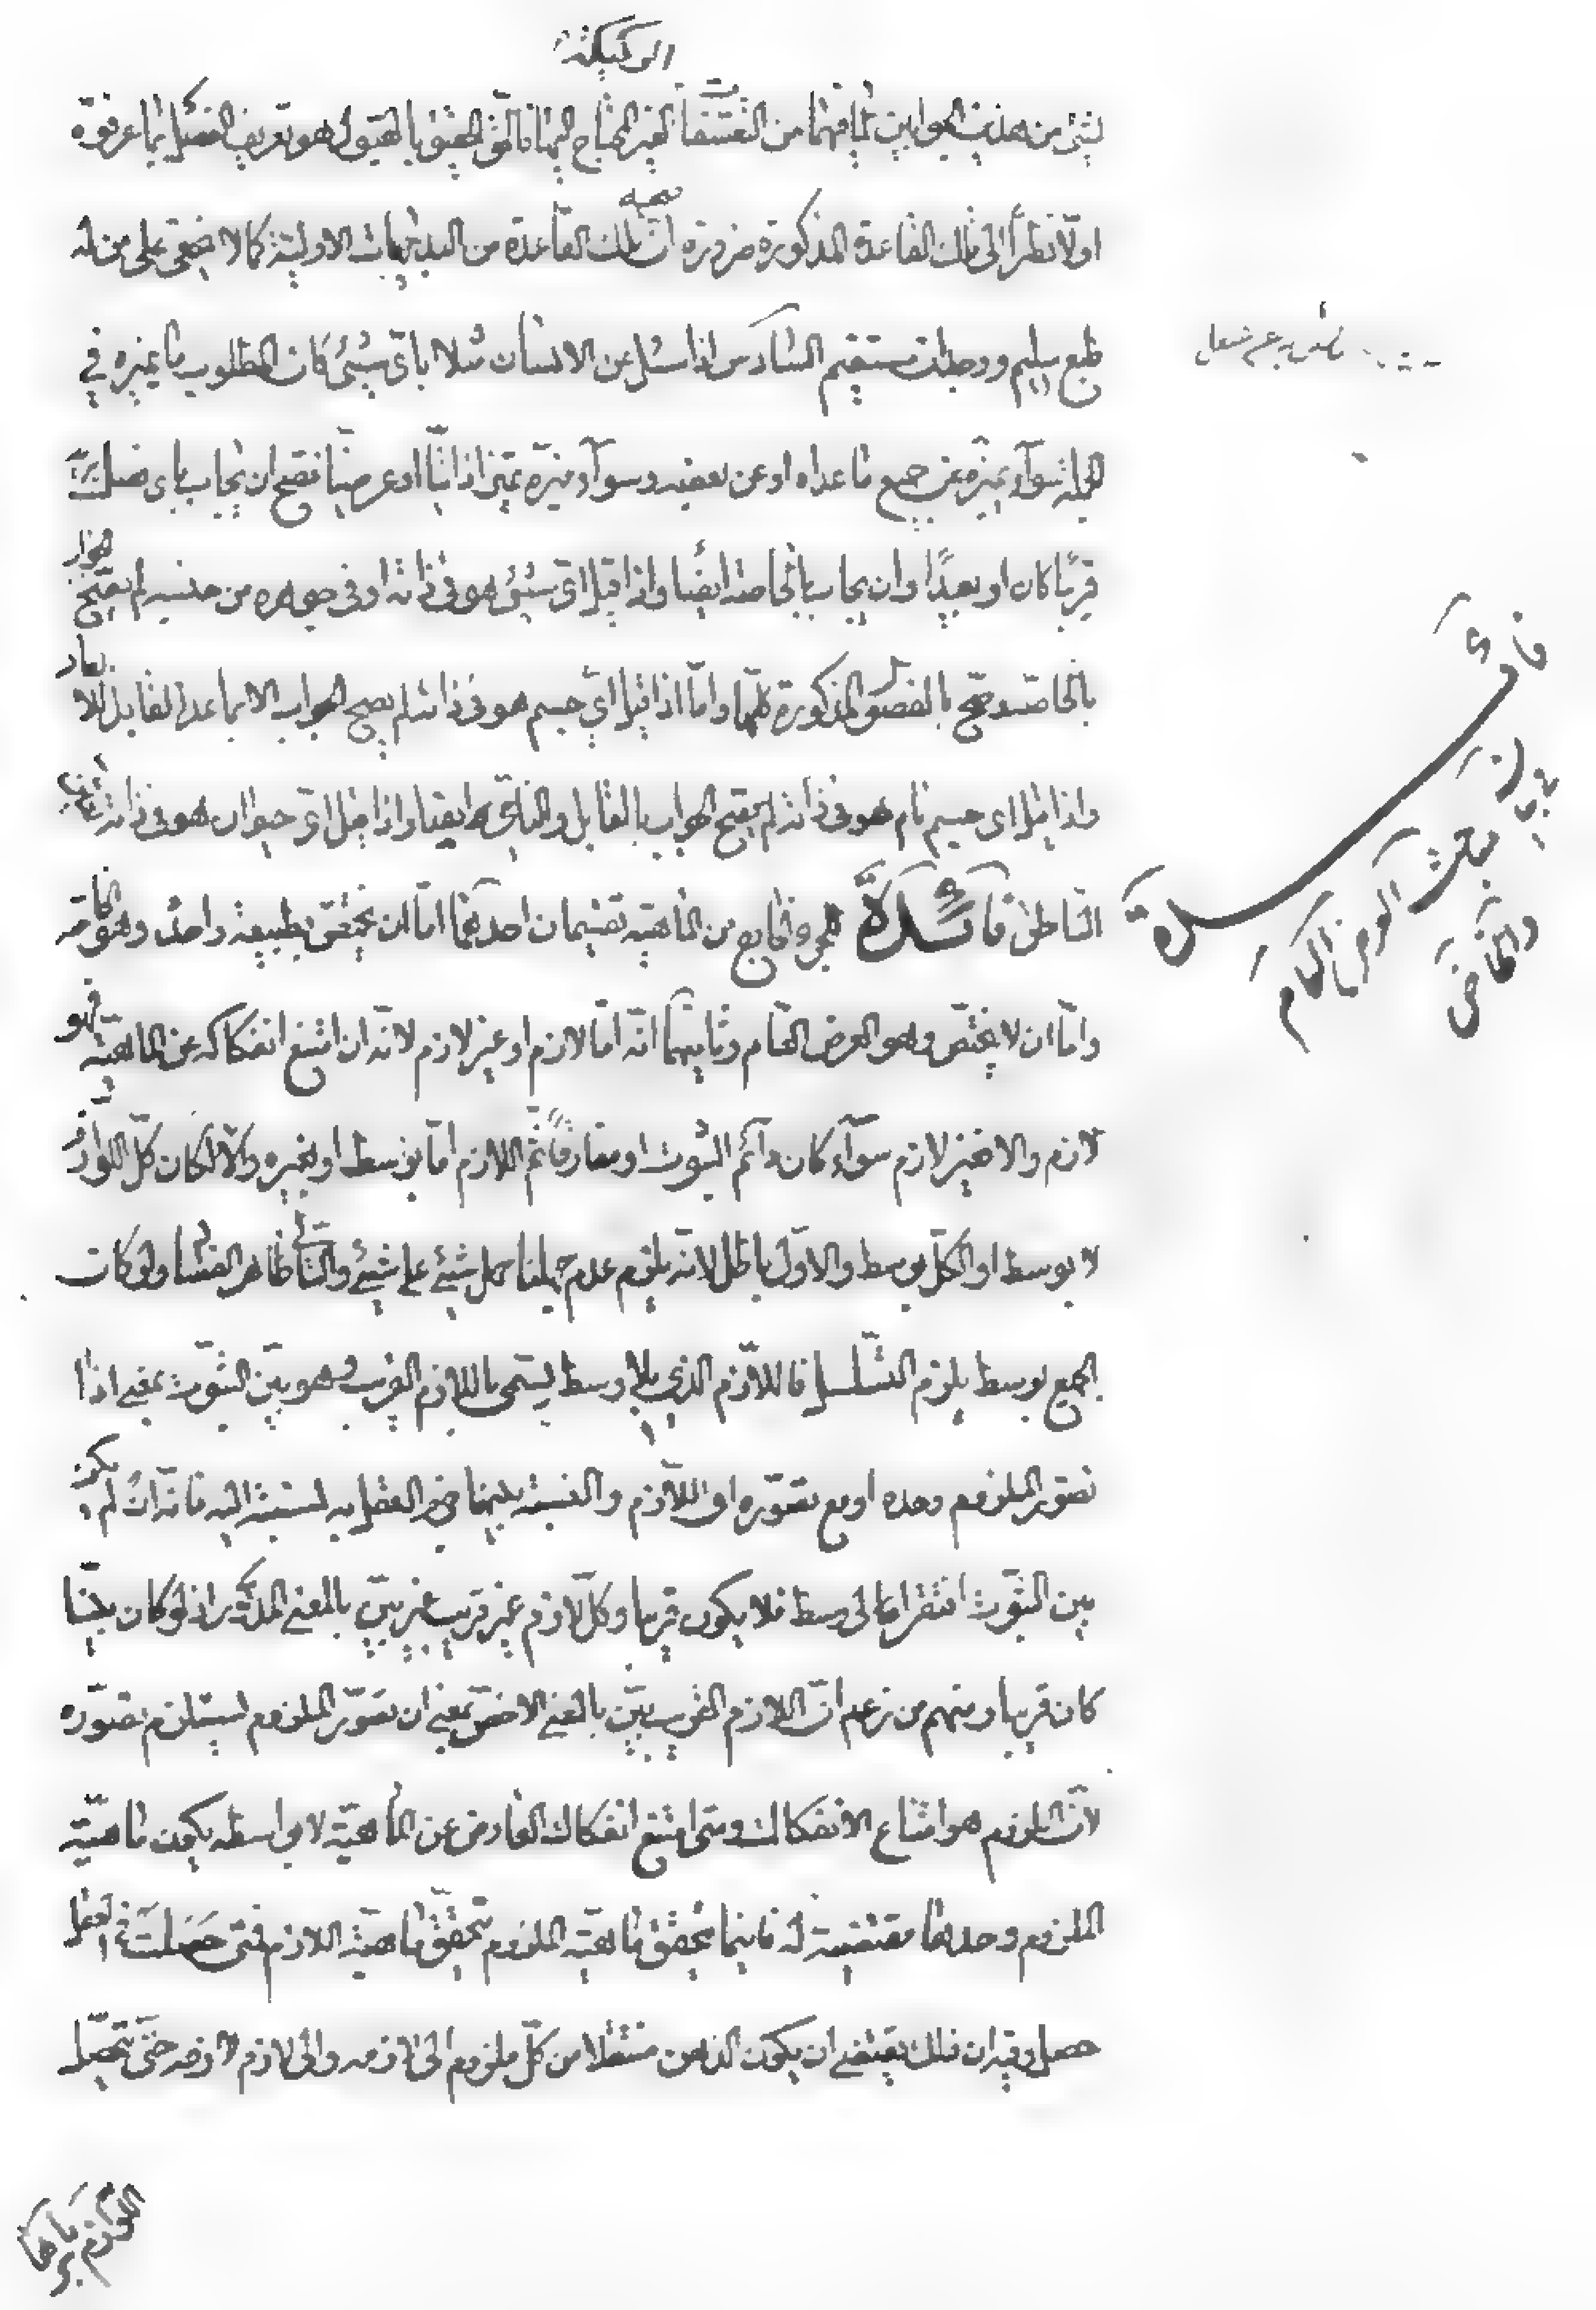 لشئ من هذين الجوابين لما فيهما من التعسفات الغير المحتاج اليها فالحق الحقيق بالقبول هو تعريف الفصل بما عرفوه
اولا نظرا الى تلك القاعدة المذكورة ضرورة ان تلك القاعدة من البديهيات الاولية كما لا يخفى على من له
طبع سليم ووجدان مستقيم السادس اذا سئل عن الانسان مثلا باى شئ كان المطلوب ما يميزه في
الجملة سوآء يميزه عن جميع ما عداه او عن بعضه وسوآء ميزه تميزا ذاتيا او عرضيا فصح ان يجاب باى فصل
قريبا كان او بعيدا وان يجاب بالخاصة ايضا واذا قيل اى شئ هو فى ذاته او فى جوهره من جنسه لم يصح الجواب
بالخاصة وصح بالفصول المذكورة كلها واما اذا قيل اى جسم هو فى ذاته لم يصح الجواب الا بما عدا القابل للابعاد
واذا قيل اى جسم نام هو فى ذاته لم يصح الجواب بالقابل والنامى ايضا واذا قيل اى حيوان هو فى ذاته تعين
الناطق فآئدة للجزء الخارج من الماهية تقسيمان احدهما اما ان يختص بطبيعة واحدة وهو الخاصة
واما ان لا يختص وهو العرض العام وثانيهما انه اما لازم او غير لازم لانه ان امتنع انفكاكه عن الماهية فهو
لازم والا فغير لازم سوآء كان دآئم الثبوت او مفارقا ثم اللازم اما بوسط او بغيره والا لكان كل اللوازم
لا بوسط او الكل بوسط والاول باطل لانه يلزم عدم جهلنا بحمل شيئ على شيئ والثانى ظاهر الفساد اذ لو كان
الجميع بوسط يلزم التسلسل فاللازم الذى بلا وسط يسمى باللازم القريب وهو بين الثبوت بمعنى اذا
تصور الملزوم وحده او مع تصوره اى اللازم والنسبة بينهما جزم العقل به لنسبته اليه فانه ان لم يكن
بين الثبوت افتقر الى وسط فلا يكون قريبا وكل لازم غير قريب غير بين بالمعنى المذكور اذ لو كان بينا
كان قريبا ومنهم من زعم ان اللازم القريب بين بالمعنى الاخص بمعنى ان تصور الملزوم يستلزم تصوره
لان اللزوم هو امتناع الانفكاك ومتى امتنع انفكاك العارض عن الماهية لا بواسطه يكون ماهية
الملزوم وحدها مقتضية له فاينما يتحقق ماهية الملزوم يتحقق ماهية اللازم فمتى حصلت فى العقل
حصل وفيه ان ذلك يقتضى ان يكون الذهن منتقلا من كل ملزوم الى لازمه والى لازم لازمه حتى تحصل
اللوازم باسرها
فآئدة
فى بيان مباحث العرض العام
والخاص